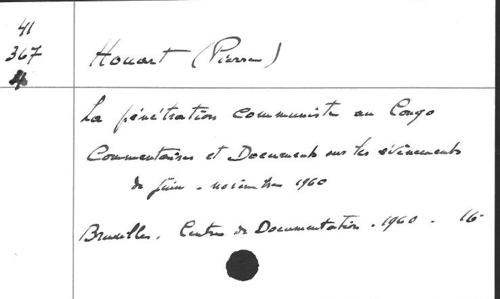 41
367
4
Houart (Pierre)
La pénétration communiste au Congo
Commentaires et Documents sur les événements
de Juin - novembre 1960
Bruxelles. Centre de Documentation. 1960. 16-